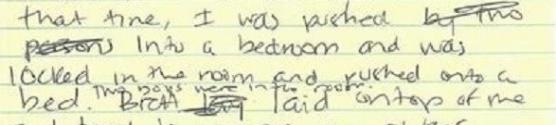 that time, I was pushed by two
persons into a bedroom and was
locked in the room and pushed onto a
Two boys were in the room.
bed. Brett laid ontop of me